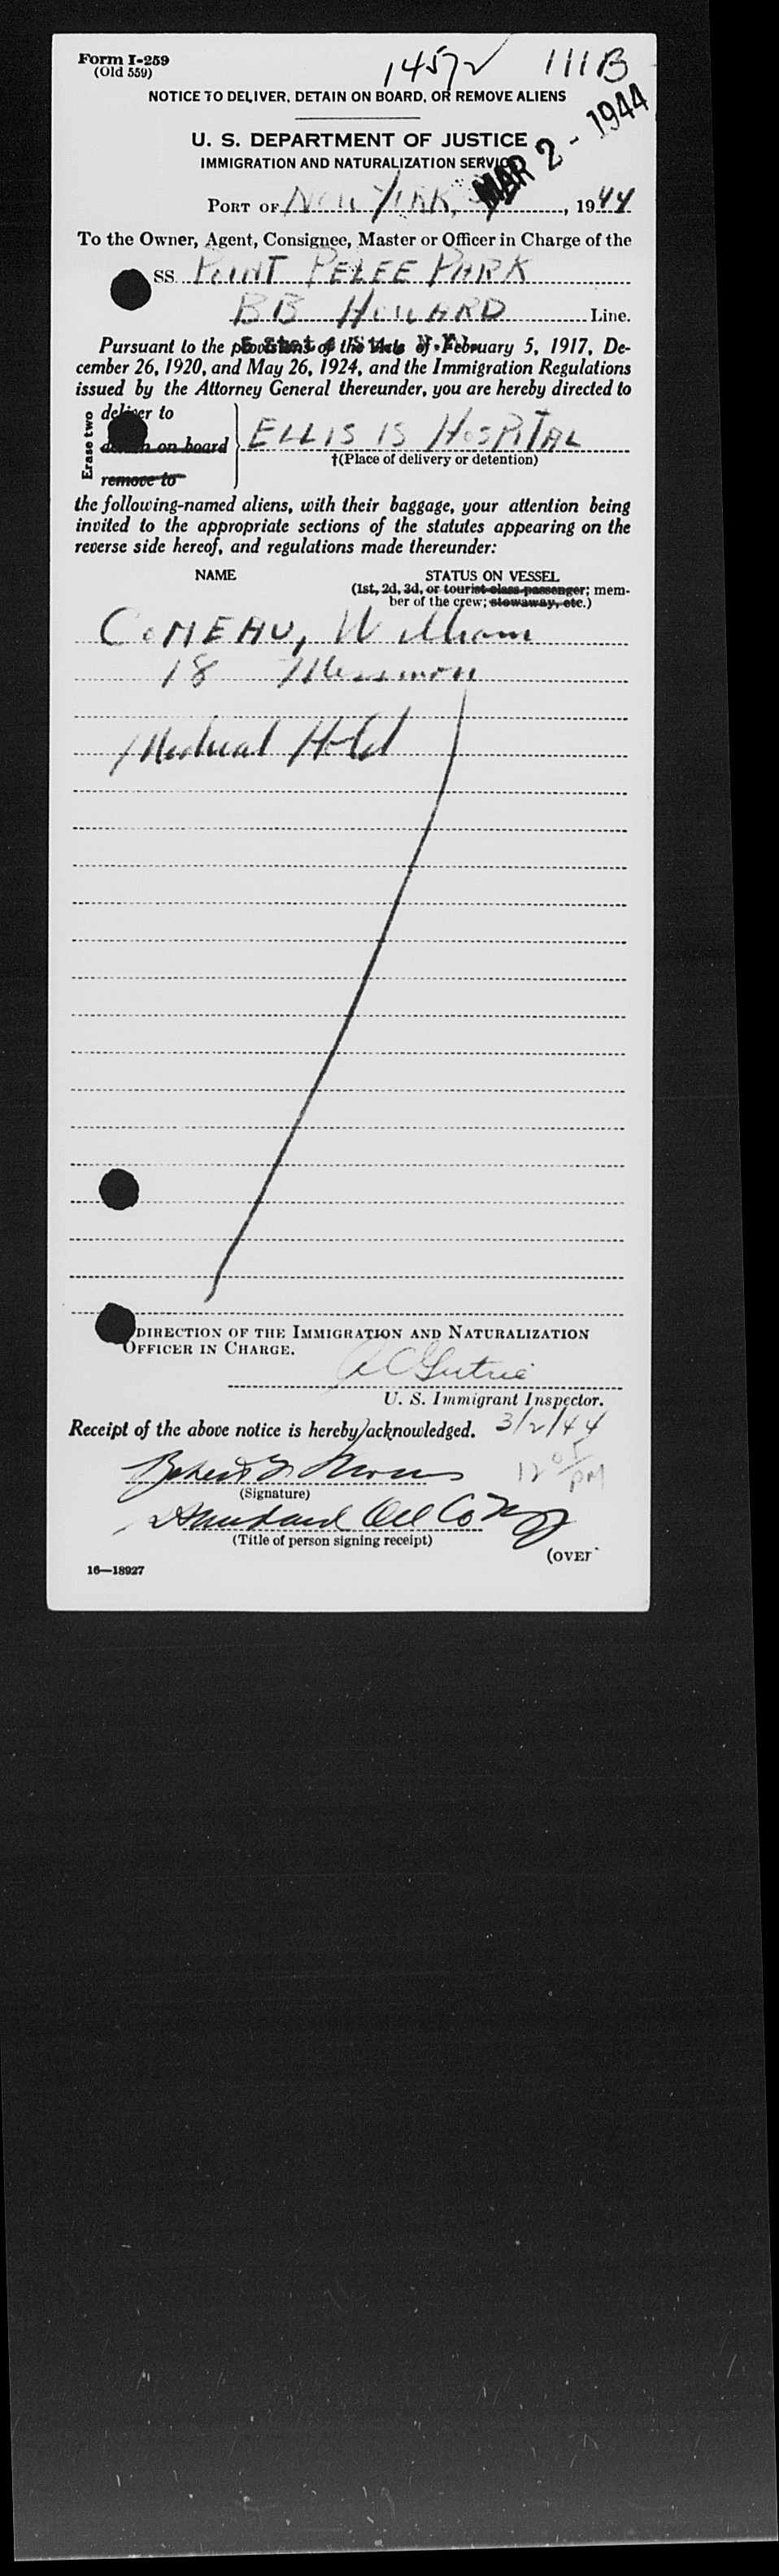 Form I-259
(Old 559)
14572 111B
NOTICE TO DELIVER, DETAIN ON BOARD, OR REMOVE ALIENS
MAR 2 - 1944
U. S. DEPARTMENT OF JUSTICE
IMMIGRATION AND NATURALIZATION SERVICE
PORT OF NEW YORK, 1944
To the Owner, Agent, Consignee, Master or Officer in Charge of the
SS. POINT PELEE PARK
BB HOWARD Line.
Pursuant to the provisions of the Acts of February 5, 1917, De-
cember 26, 1920, and May 26, 1924, and the Immigration Regulations
issued by the Attorney General thereunder, you are hereby directed to
Erase two
deliver to
on board
ELLIS IS HOSPITAL
†(Place of delivery or detention)
remove to
the following-named aliens, with their baggage, your attention being
invited to the appropriate sections of the statutes appearing on the
reverse side hereof, and regulations made thereunder:
NAME STATUS ON VESSEL
(1st, 2d, 3d, or tourist class passenger; mem-
ber of the crew; stowaway, etc.)
COMEAU, William
18 Messman
Medical Hold
DIRECTION OF THE IMMIGRATION AND NATURALIZATION
OFFICER IN CHARGE.
U. S. Immigrant Inspector.
Receipt of the above notice is hereby acknowledged. 3/2/44
12 05 PM
Robert
(Signature)
Standard Oil Co NJ
(Title of person signing receipt)
(OVER
16—18927